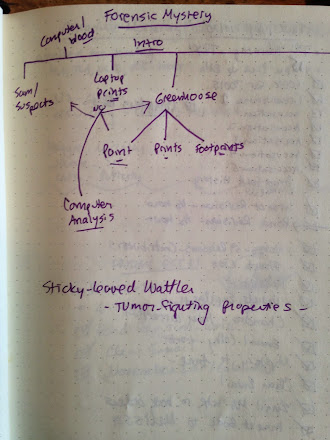 Forensic Mystery
Computer/
blood
Intro
Sam/
suspects
Laptop
prints
Greenhouse
Paint
Prints
Footprints
Computer
Analysis
Sticky-leaved Wattler
- Tumor-fighting properties -